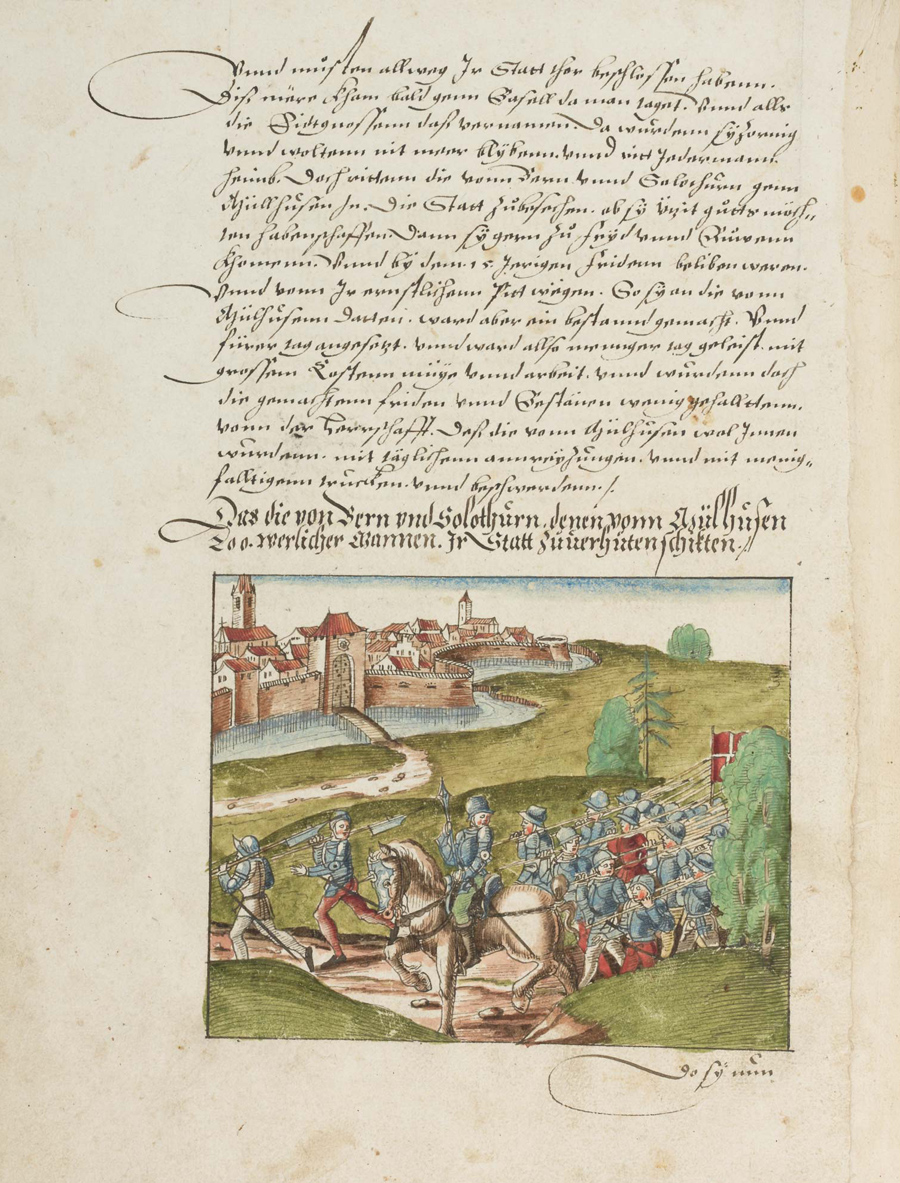 Vnnd musten allweg Jr Statt thor beschlossen habenn.
Diss märe kham bald genn Basell da man taget. Vnnd alls
die Eidtgnossenn dass vernamen. Da wurdenn sy zornig
vnnd woltenn nit meer blybenn. vnnd ritt Jederman
heimb. Doch rittenn die vonn Bern vnnd Solothurn genn
Mülhusen Jn. Die Statt zubesechen. ob sy ützit gutts möch„
ten habenschaffen. Dann sy gern zu fryd vnnd Ruwenn
khomenn. Vnnd by dem .15. Jerigen fridenn beliben weren.
Vnnd vonn Jr ernstlichenn Pitt wägen. So sy an die vonn
Mülhusenn Datten. ward aber ein bestannd gemacht. Vnnd
fürer tag angesetzt. vnnd ward allso meniger tag geleist. mit
grossem Kostenn müye vnnd arbeit. vnnd wurdenn doch
die gemachtenn friden vnnd Bestänen wenig gehalttenn.
vonn der Herrschafft. Dess die vonn Mülhusen wol Jnnen
wurdenn. mit täglichenn annreytzungen. vnnd mit menig„
falltigenn trucken. vnnd beschwerdenn ./.
Das die von Bern vnd Solothurn. denen vonn Mülhusen
200. werlicher Mannen. Jr Statt zuuerhüten schikten ./
do sy nun